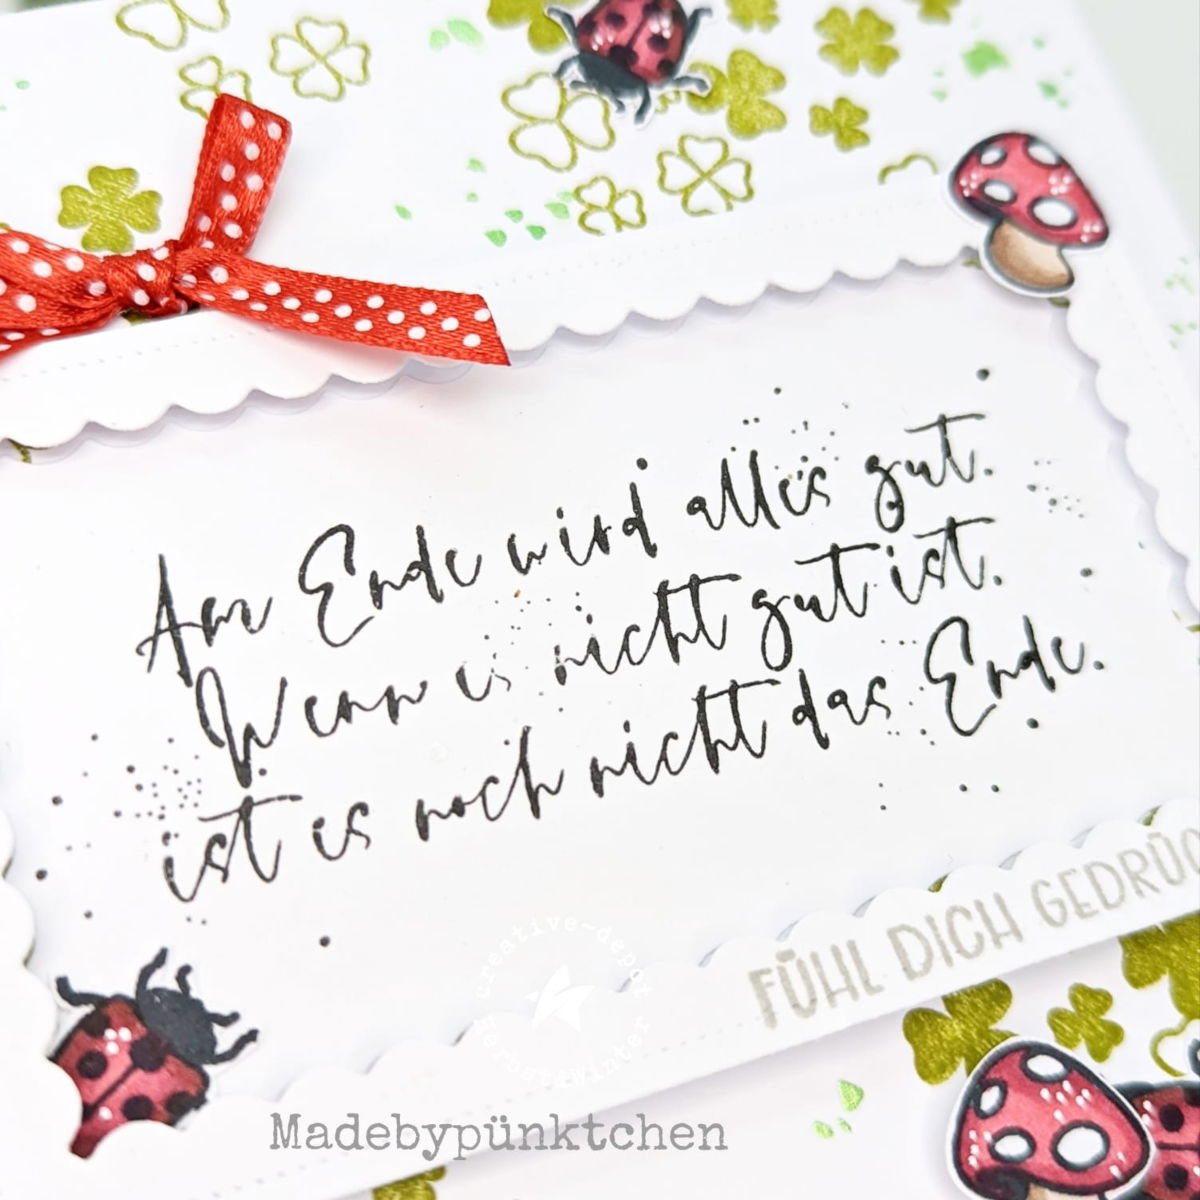 Am Ende wird alles gut.
Wenn es nicht gut ist.
ist es noch nicht das Ende.
FÜHL DICH GEDRÜC
creative-depot
Herbst&Winter
Madebypünktchen